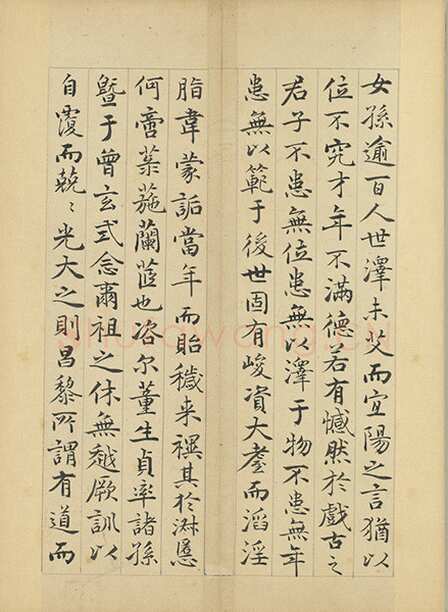 女孫逾百人世澤未艾而宜陽之言猶以
位不究才年不滿德若有憾然於戲古之
君子不患無位患無以澤于物不患無年
患無以範于後世固有峻資大耋而滔淫
脂韋蒙詬當年而貽穢来禩其於淑慝
何啻菉葹蘭茝也咨尔董生貞率諸孫
曁于曾玄式念爾祖之休無厥訓以
自覆而兢〻光大之則昌黎所謂有道而